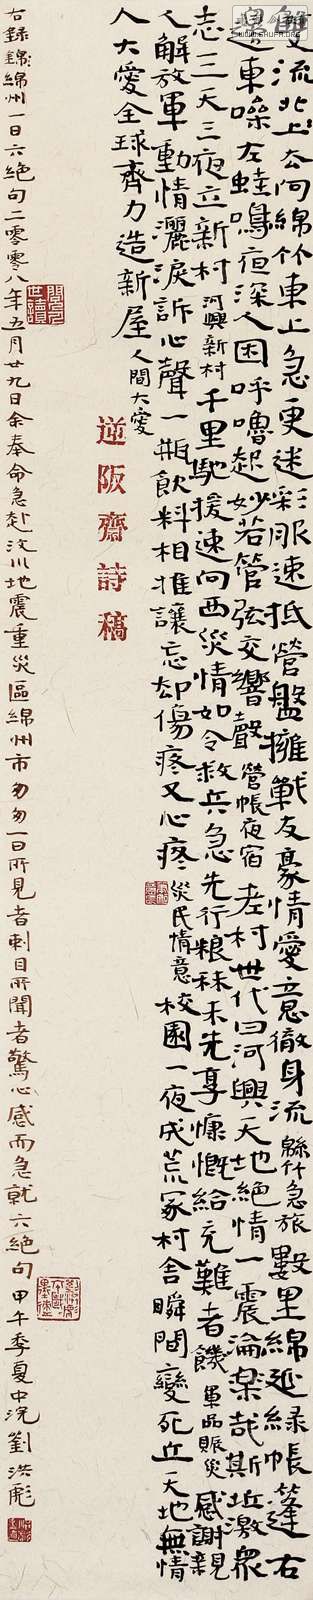 雙流北上六河綿竹東上急更迷彩服速抵營盤擁戰友豪情愛意徹身流 緜竹急旅 數里綿延綠帳篷右
邊東嗓左蛙鳴夜深人困呼嚕起妙若管弦交響聲 營帳夜宿 老村世代曰河興天地絕情一震淪樂哉斯丘激衆
志三天三夜立新村 河興新村 千里馳援速向西災情如令救兵急先行糧秣未先享慷慨給充難者饑 軍品賑災 感謝親
人解放軍動情灑淚訴心聲一瓶飲料相推讓忘却傷疼又心疼 災民情意 校園一夜成荒冢村舍瞬間變死丘天地無情
人大愛全球齊力造新屋 人間大愛
逆阪齋詩稿
右錄錦綿州一日六絕句二零零八年五月廿九日余奉命急赴汶川地震重災區綿州市匆匆一日所見者刺目所聞者驚心感而急就六絕句甲午季夏中浣劉洪彪